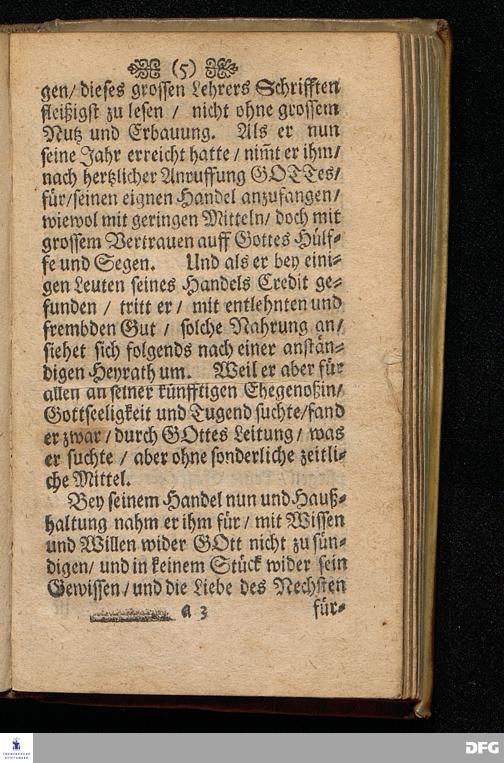 (5)
gen/ dieses grossen Lehrers Schrifften
fleißigst zu lesen / nicht ohne grossem
Nutz und Erbauung. Als er nun
seine Jahr erreicht hatte / nim̃t er ihm/
nach hertzlicher Anruffung GOTTes/
für/seinen eignen Handel anzufangen/
wiewol mit geringen Mitteln/ doch mit
grossem Vertrauen auff Gottes Hülf-
fe und Segen. Und als er bey eini-
gen Leuten seines Handels Credit ge-
funden / tritt er / mit entlehnten und
frembden Gut / solche Nahrung an/
siehet sich folgends nach einer anstän-
digen Heyrath um. Weil er aber für
allen an seiner künfftigen Ehegenoßin/
Gottseeligkeit und Tugend suchte/fand
er zwar / durch GOttes Leitung / was
er suchte / aber ohne sonderliche zeitli-
che Mittel.
Bey seinem Handel nun und Hauß-
haltung nahm er ihm für / mit Wissen
und Willen wider GOtt nicht zu sün-
digen/ und in keinem Stück wider sein
Gewissen / und die Liebe des Nechsten
a 3 für-
FRANCKESCHE STIFTUNGEN
DFG